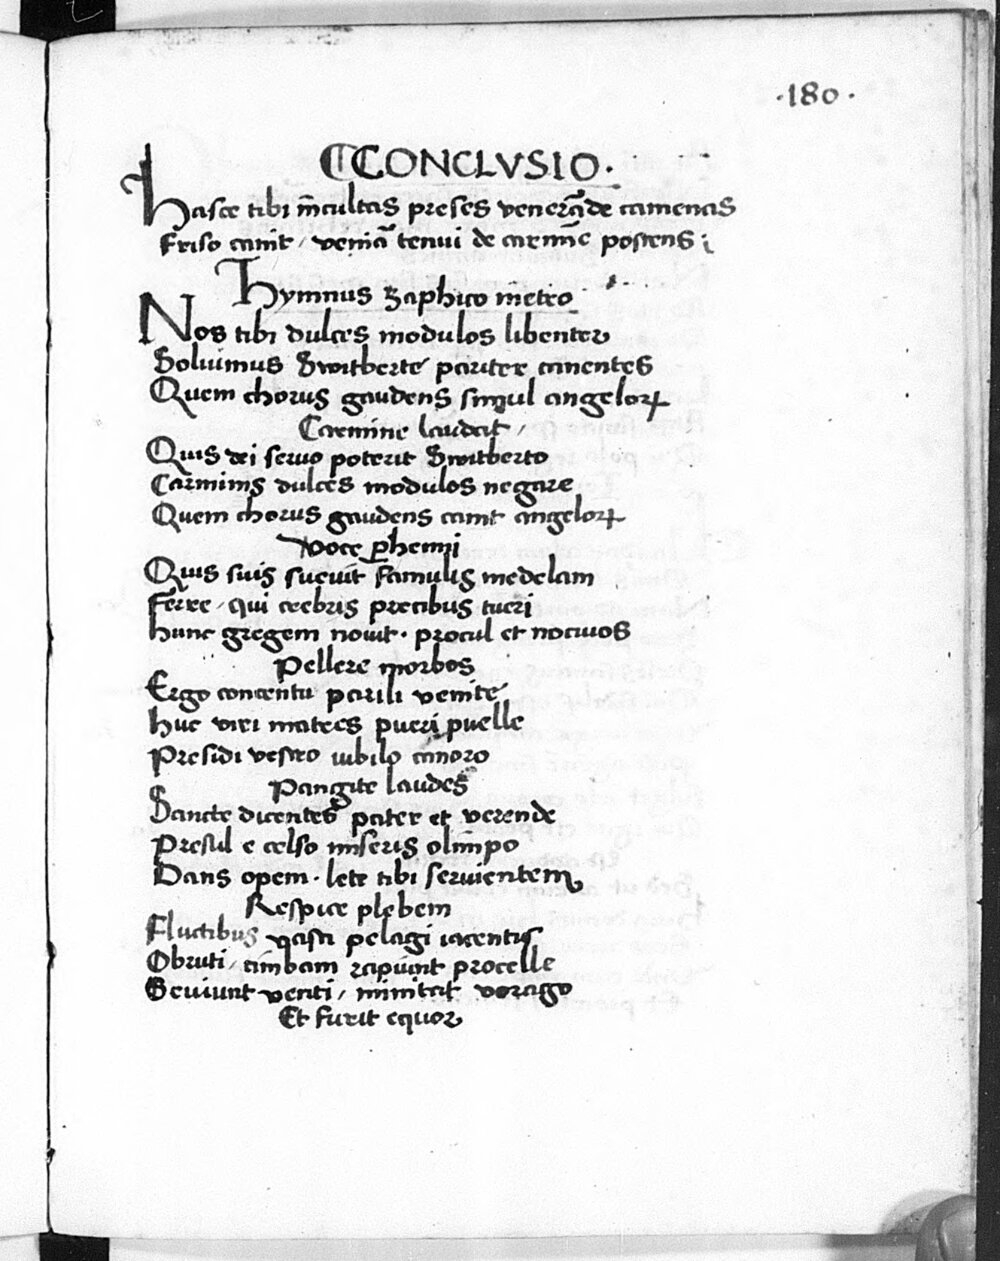 ·180·
CONCLVSIO·
Hasce tibi īncultas preses venerāde camenas
Friso canit / veniā tenui de carmīe poscens ;
Hymnus Saphico metro
Nos tibi dulces modulos libenter
Soluimus Switberte pariter canentes
Quem chorus gaudens simul angeloꝝ
Carmine laudat /
Quis dei seruo poterit Switberto
Carminis dulces modulos negare
Quem chorus gaudens canit angeloꝝ
Voce ꝑhenni
Quis suis sueuit famulis medelam
Ferre / qui crebris precibus tueri
Hunc gregem nouit · procul et nociuos
Pellere morbos
Ergo concentu parili venite
Huc viri matres pueri puelle
Presidi vestro iubilo canoro
Pangite laudes
Sancte dicentes pater et verende
Presul e celso miseris olimpo
Dans opem · lete tibi seruientem
Respice plebem
Fluctibus vasti pelagi iacentis
Obruti / cimbam rapiunt procelle
Seuiunt venti / minitat vorago
Et furit equor